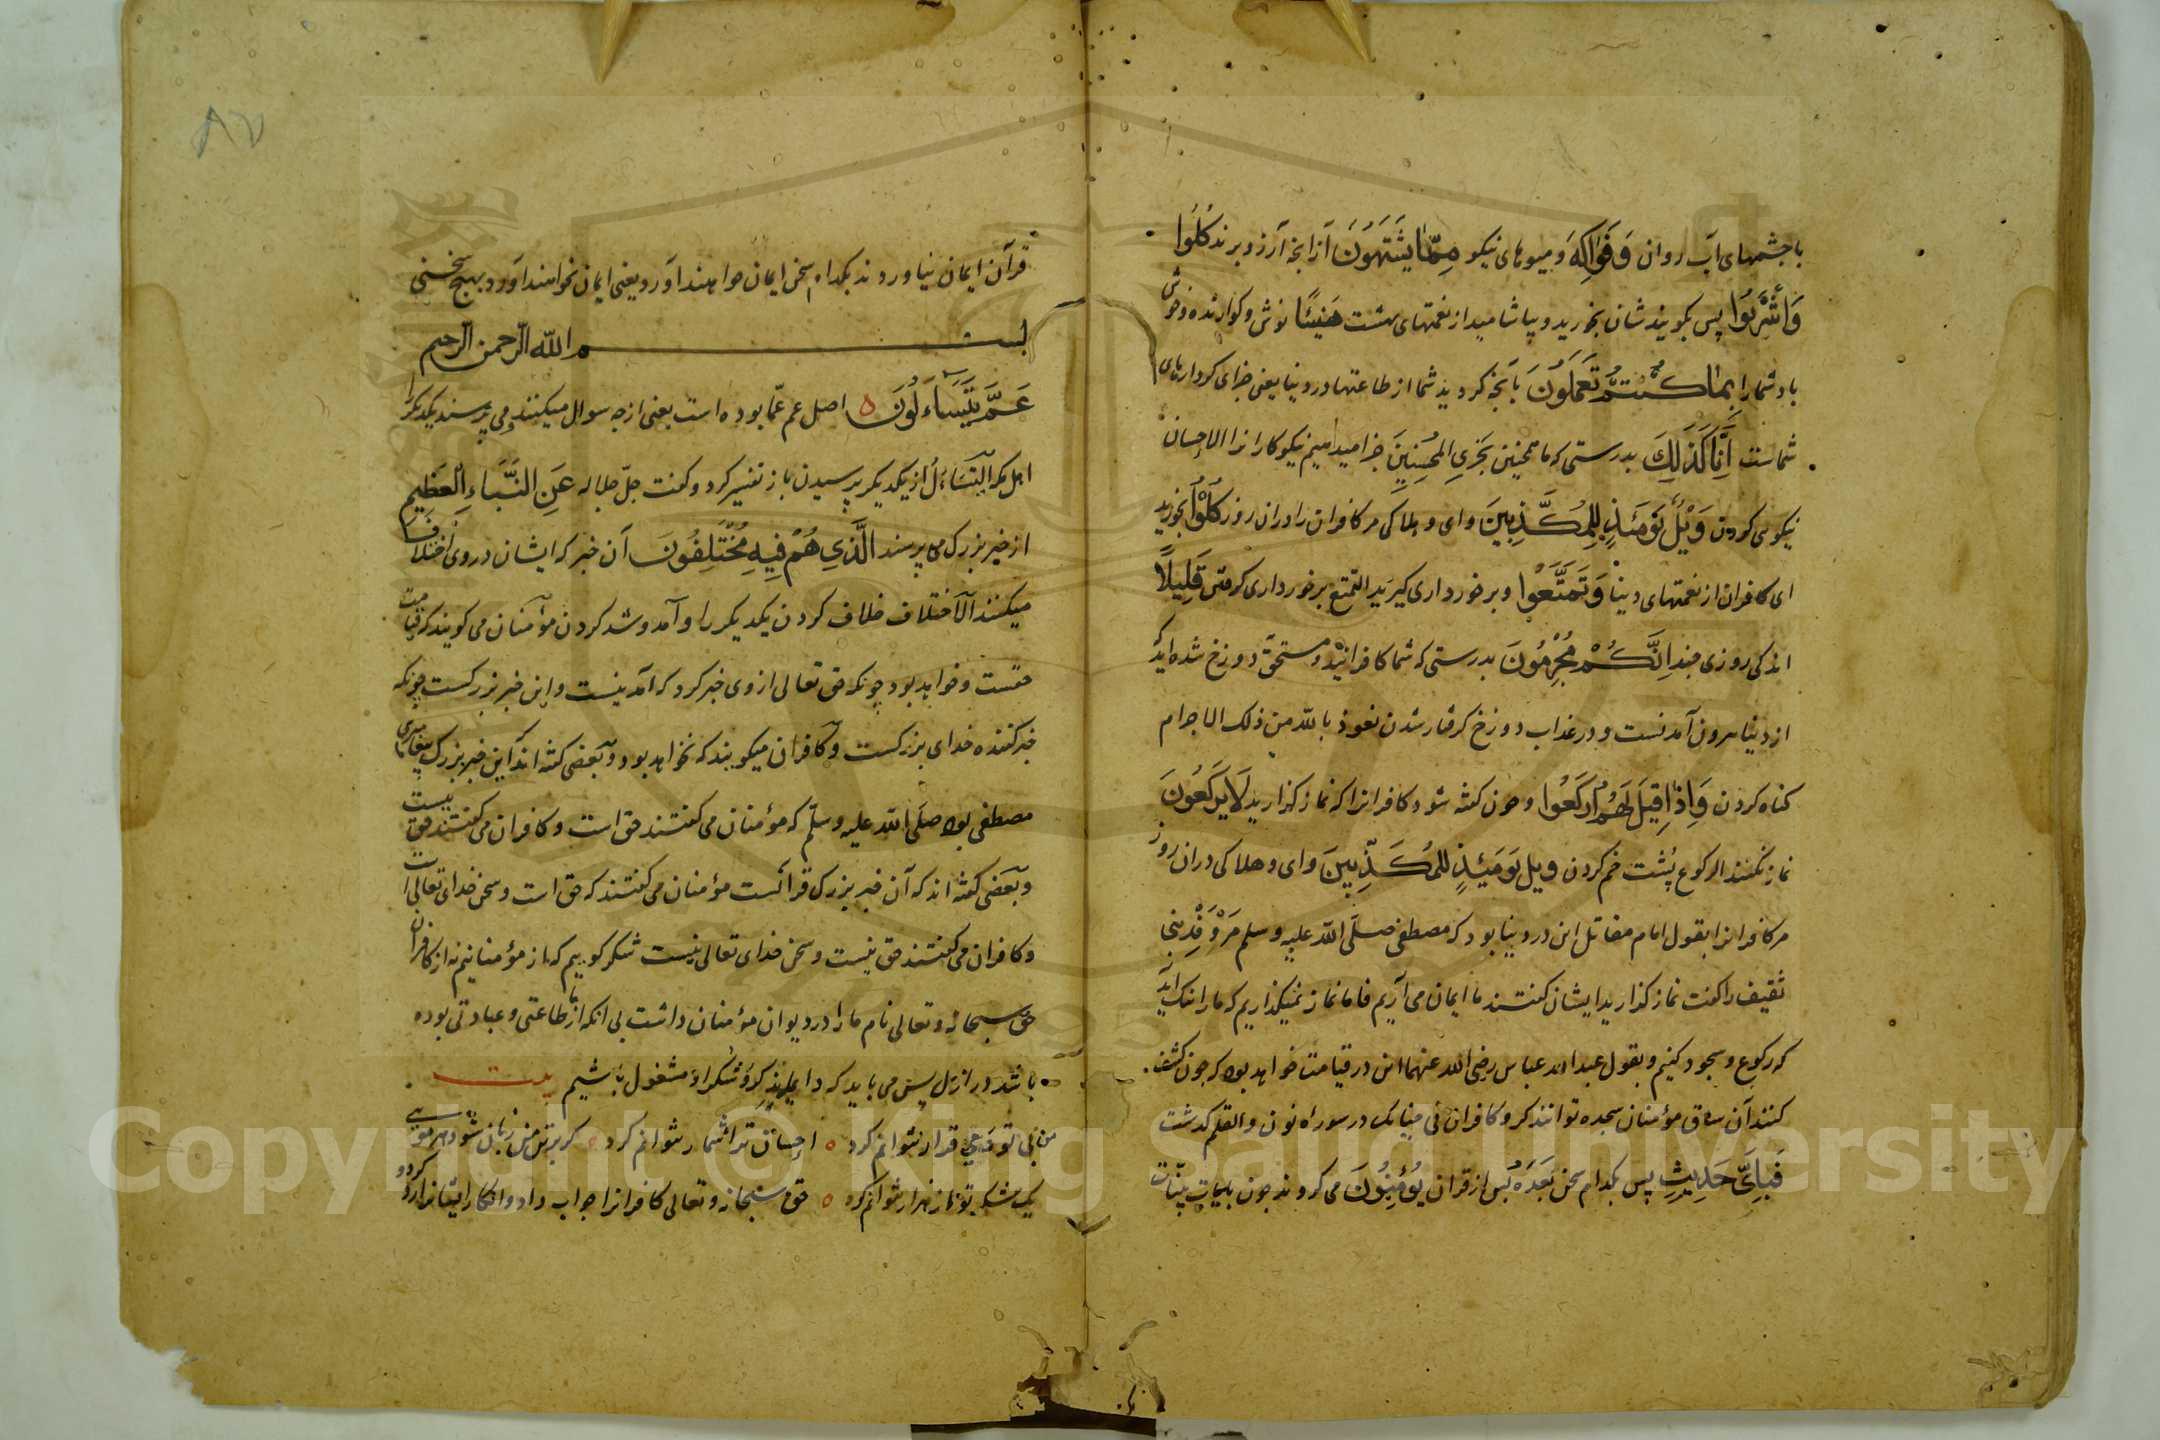 با چشمهای آب روان وَفَوَاكِهَ و میوهای نیکو مِمَّا يَشْتَهُونَ از انچه آرزو برند كُلُوا
وَاشْرَبُوا پس بگویند شان بخورید و بیاشامید از نعمتهای بهشت هَنِيئًا نوش و گوارنده و خوش
باد شما را بِمَا كُنْتُمْ تَعْمَلُونَ بانچه کردید شما از طاعتها در دنیا یعنی جزای کردارهای
شماست اِنَّا كَذَلِكَ بدرستی که ما همچنین نَجْزِي الْمُحْسِنِينَ جزا میدهیم نیکوکارانرا الاحسان
نیکویی کردن وَيْلٌ يَوْمَئِذٍ لِلْمُكَذِّبِينَ وای و هلاکی مر کافران را دران روز كُلُوا بخورید
ای کافران از نعمتهای دنیا وَتَمَتَّعُوا و برخورداری گیرید التمتع برخورداری گرفتن قَلِيلًا
اندکی روزی چند اِنَّكُمْ مُجْرِمُونَ بدرستی که شما کافرانید و مستحق دوزخ شده اید
از دنیا بیرون آمدنست و در عذاب دوزخ گرفتار شدن نعوذ بالله من ذلک الاجرام
گناه کردن وَاِذَا قِيلَ لَهُمُ ارْكَعُوا و چون گفته شود کافرانرا که نماز گزارید لَا يَرْكَعُونَ
نماز نکنند الرکوع پشت خم کردن ويل يَوْمَئِذٍ للْمُكَذِّبِينَ وای و هلاکی دران روز
مر کافرانرا بقول امام مقاتل این در دنیا بود که مصطفی صلی الله علیه وسلم مر وفد بنی
ثقیف را گفت نماز گذارید ایشان گفتند ما ایمان می آریم فاما نماز نمیگذاریم که ما را ننگ آید
که رکوع و سجود کنیم و بقول عبدالله عباس رضی الله عنهما این در قیامت خواهد بود که چون کشف
کنند آن ساق مؤمنان سجده توانند کرد و کافران نی چنانک در سوره نون والقلم گذشت
فَبِاَيِّ حَدِيثٍ پس بکدام سخن بَعْدَهُ پس از قران يُؤْمِنُونَ می گروند چون بایات بینات
قرآن ایمان نیاوردند بکدام سخن ایمان خواهند آورد یعنی ایمان نخواهند آورد بهیچ سخنی
بسم الله الرحمن الرحیم
عَمَّ يَتَسَاءَلُونَ اصل عم عما بوده است یعنی از چه سوال میکنند و می پرسند یکدیگر را
اهل مکه التساءل از یکدیگر پرسیدن باز تفسیر کرد و گفت جل جلاله عَنِ النَّبَاءِ الْعَظِيمِ
از خبر بزرگ می پرسند الَّذِي هُمْ فِيهِ مُخْتَلِفُونَ آن خبر که ایشان در وی اختلاف
میکنند الاختلاف خلاف کردن یکدیگر را و آمد و شد کردن مؤمنان می گویند که قیامت
حقست و خواهد بود چونکه حق تعالی از وی خبر کرد که آمدنیست و این خبر بزرگست چونکه
خبر کننده خدای بزرگست و کافران میگویند که نخواهد بود و بعضی گفته اند این خبر بزرگ پیغامبری
مصطفی بود صلی الله علیه وسلم که مؤمنان می گفتند حق است و کافران می گفتند حق نیست
و بعضی گفته اند که آن خبر بزرگ قرآنست مؤمنان می گفتند که حق است و سخن خدای تعالی است
و کافران می گفتند حق نیست و سخن خدای تعالی نیست شکر گوییم که ما از مؤمنانیم نه از کافران
حق سبحانه و تعالی نام ما را در دیوان مؤمنان داشت بی انکه از ما طاعتی و عبادتی بوده
باشد در ازل پس می باید که دایم بذکر و شکر او مشغول باشیم بیت
من بی تو دمی قرار نتوانم کرد احسان ترا شمار نتوانم کرد گر بر تن من زبان شود هر مویی
یک شکر تو از هزار نتوانم کرد حق سبحانه و تعالی کافرانرا جواب داد و انکار ایشانرا رد کرد و
۸۷
Copyright © King Saud University